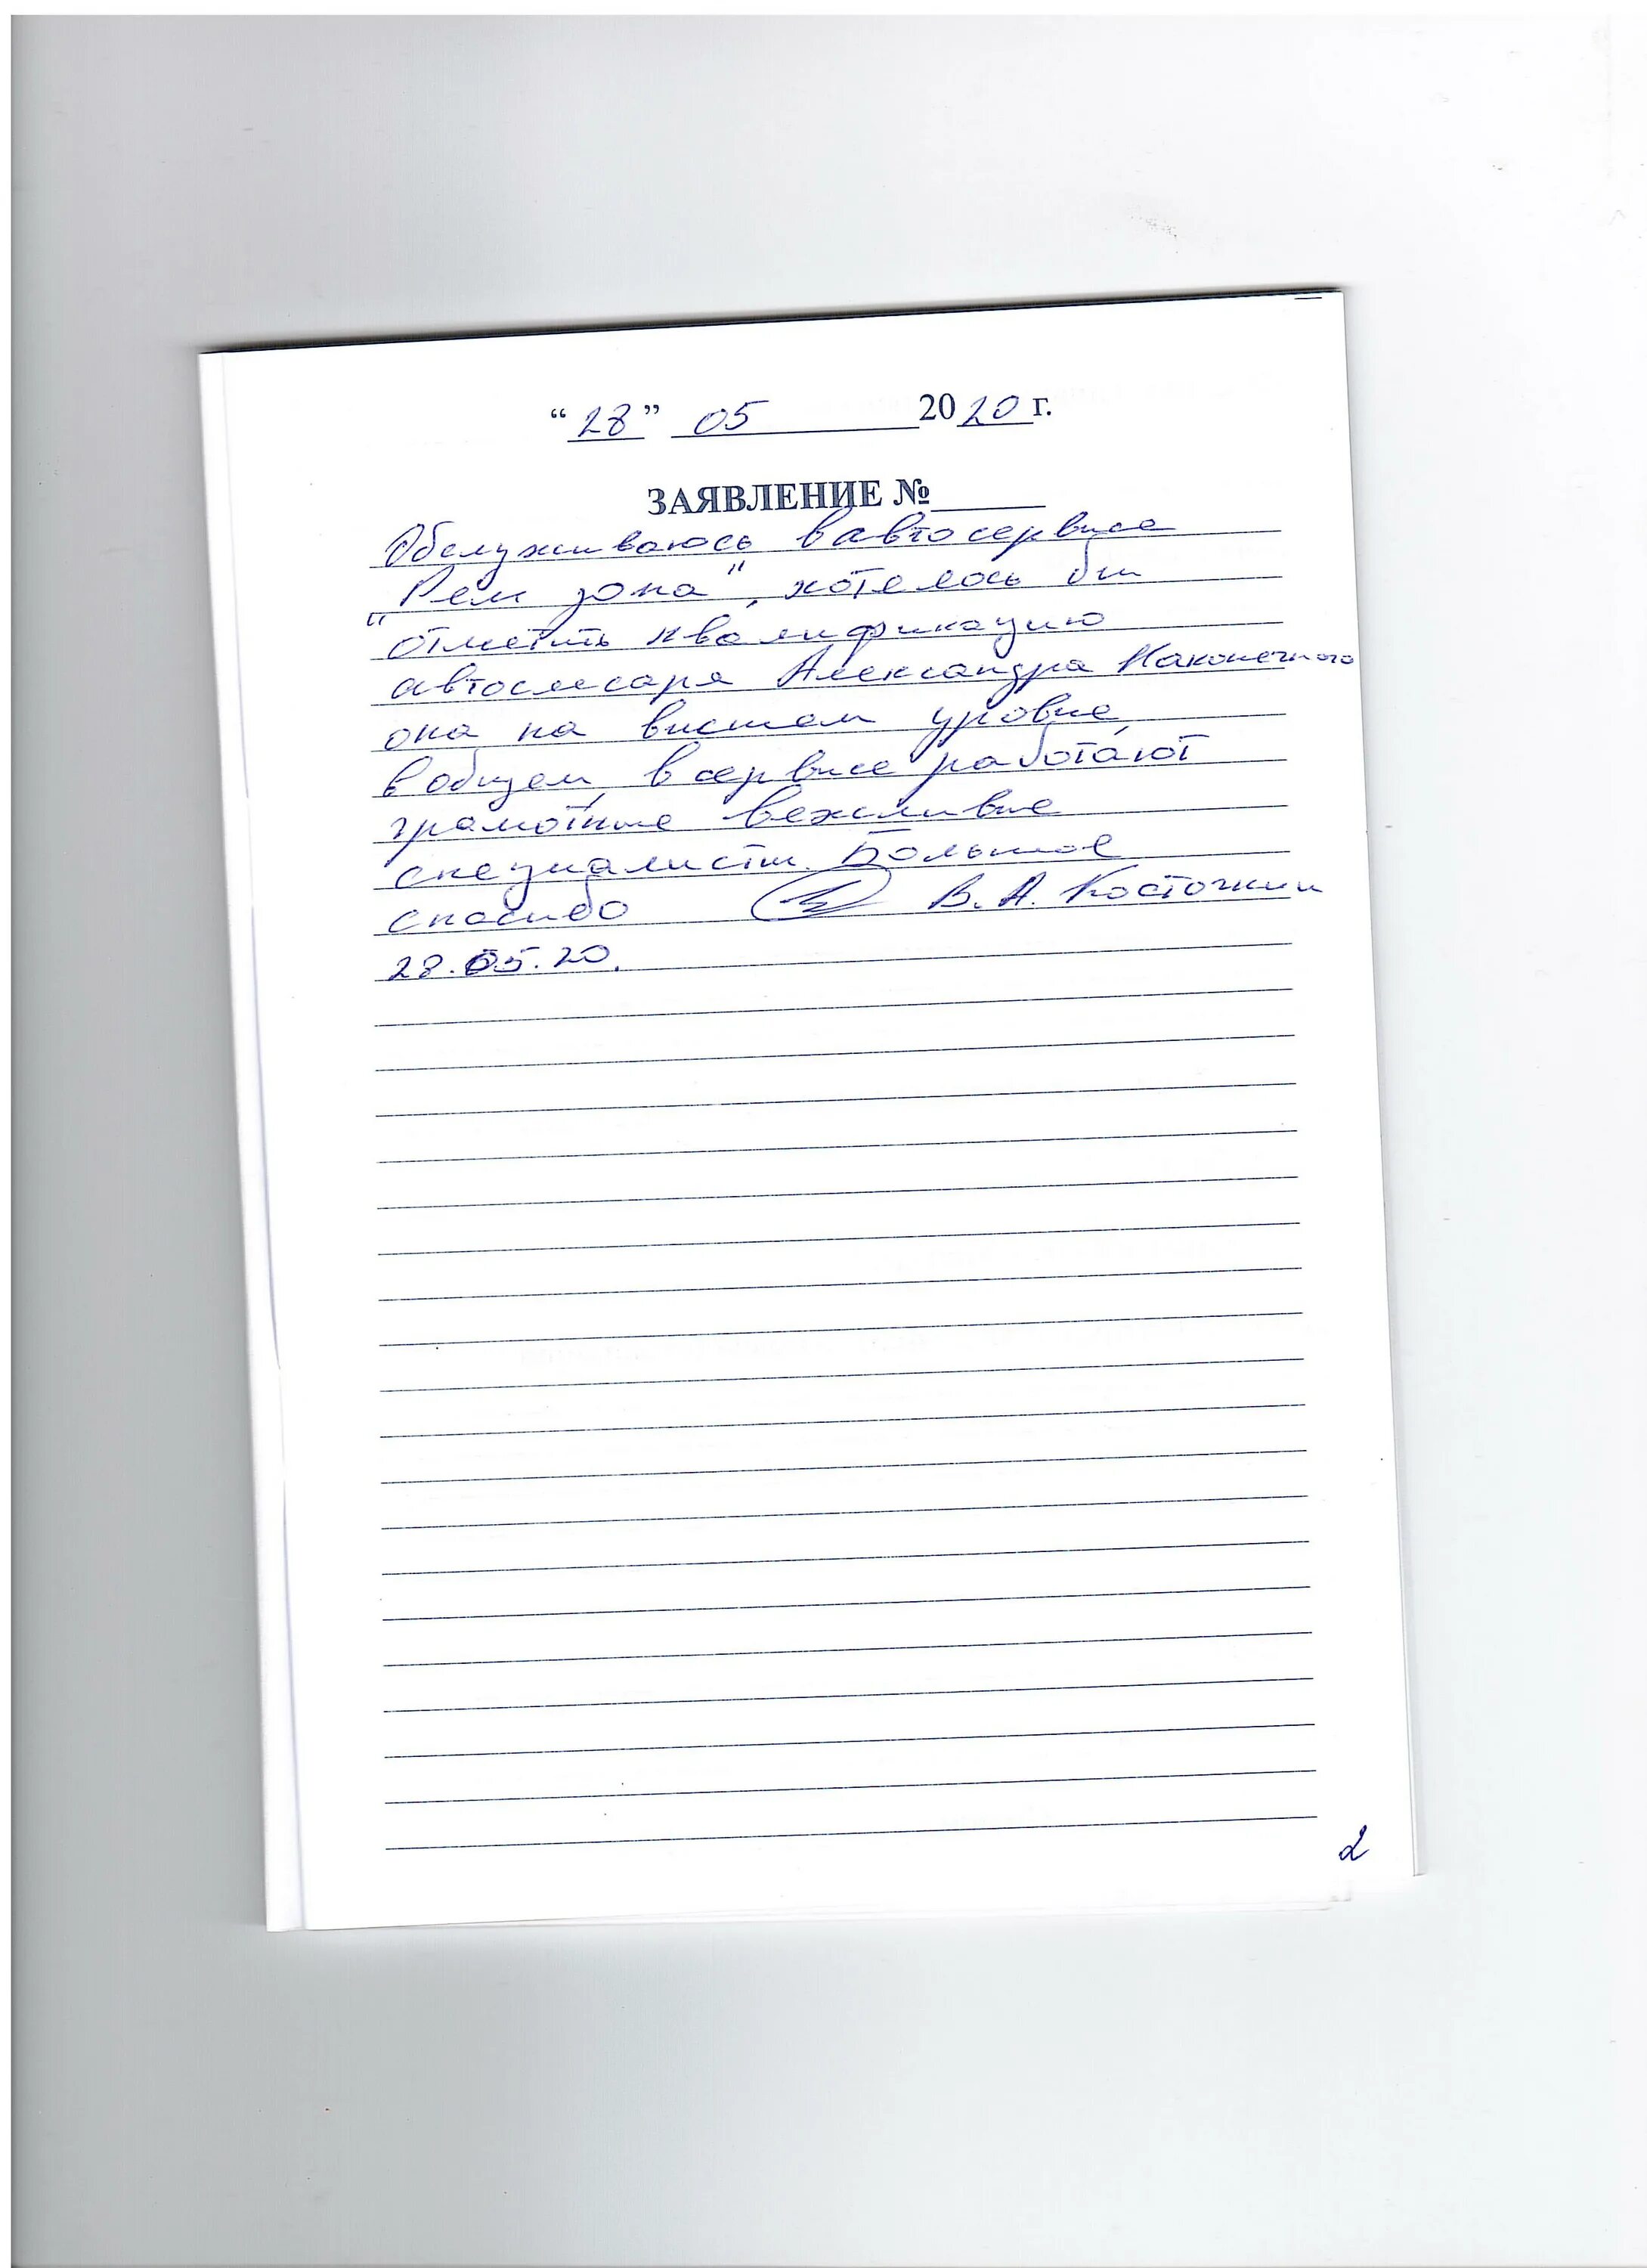 “28” 05 2020 г.
ЗАЯВЛЕНИЕ №
Обслуживаюсь в автосервисе
"Рем зона", хотелось бы
отметить квалификацию
автослесаря Александра Наконечного
она на высшем уровне,
в общем, в сервисе работают
грамотные вежливые
специалисты. Большое
спасибо В. А. Косточкин
28.05.20.
2